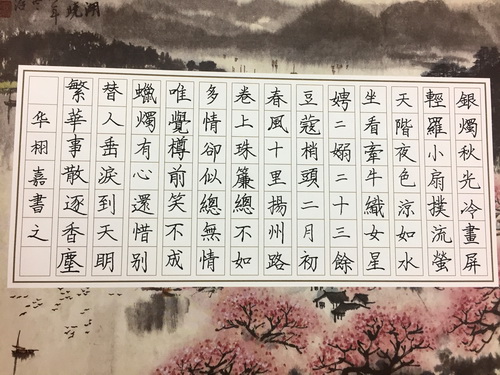 銀燭秋光冷畫屏
輕羅小扇撲流螢
天階夜色涼如水
坐看牽牛織女星
娉二嫋二十三餘
豆蔻梢頭二月初
春風十里揚州路
卷上珠簾總不如
多情卻似總無情
唯覺樽前笑不成
蠟燭有心還惜别
替人垂淚到天明
繁華事散逐香塵
华栩嘉書之